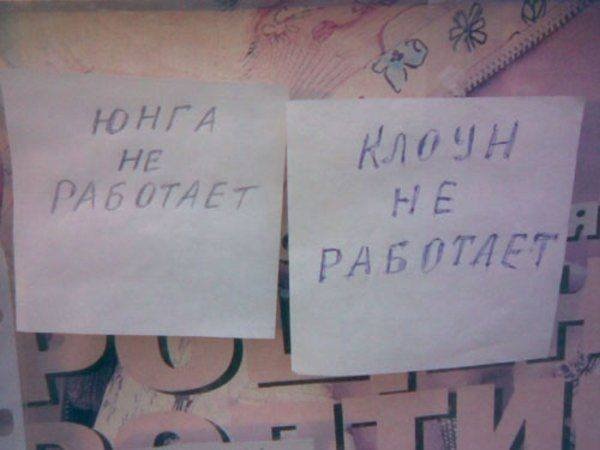 ЮНГА
НЕ
РАБОТАЕТ
КЛОУН
НЕ
РАБОТАЕТ